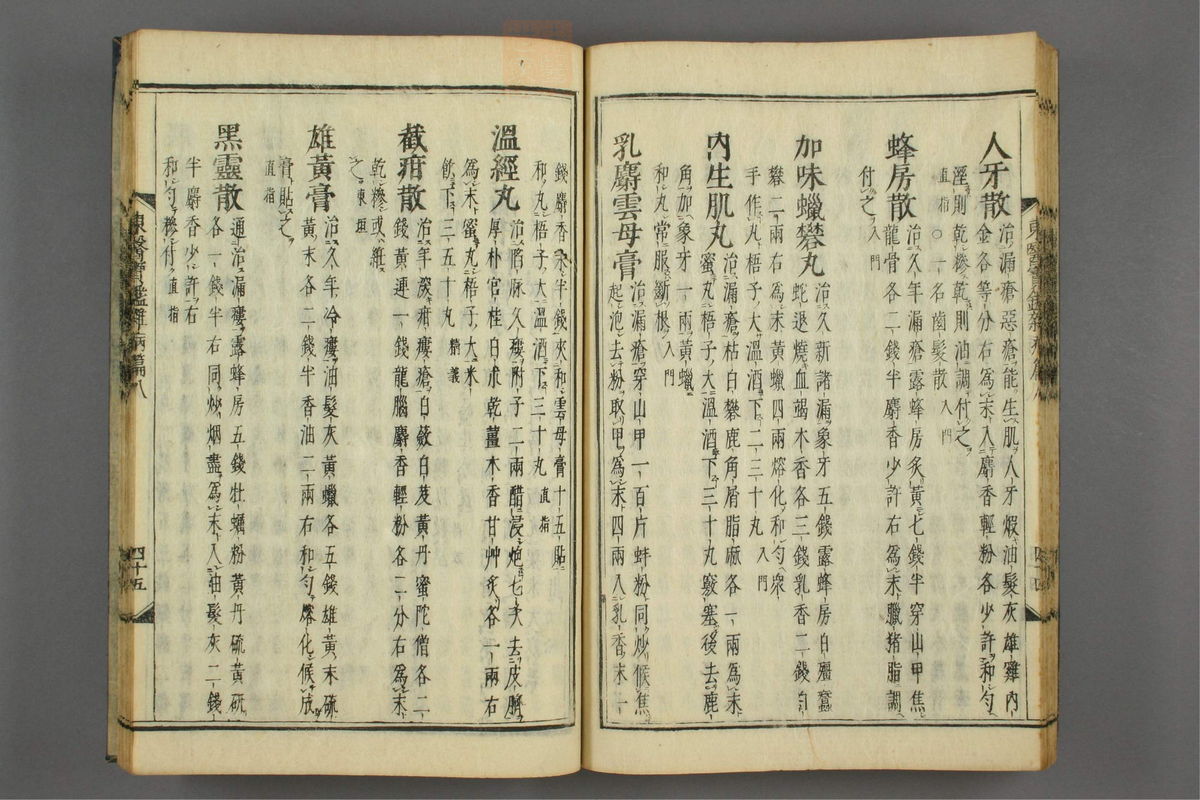 人牙散 治漏瘡惡瘡能生肌人牙煅油髮灰雄雞內
金各等分右爲末入麝香輕粉各少許和勻
溼則乾糝乾則油調付之
直指〇一名齒髮散 入門
蜂房散 治久年漏瘡露蜂房炙黃七錢半穿山甲焦
龍骨各二錢半麝香少許右爲末臘猪脂調
付之入門
加味蠟礬丸 治久新諸漏象牙五錢露蜂房白殭蠶
蛇退燒血竭木香各三錢乳香二錢白
礬二兩右爲末黃蠟四兩熔化和勻衆
手作丸梧子大溫酒下二三十丸 入門
內生肌丸 治漏瘡枯白礬鹿角屑脂麻各一兩爲末
蜜丸梧子大溫酒下三十丸竅塞後去鹿
角加象牙一兩黃蠟
和丸常服斷根 入門
乳麝雲母膏 治漏瘡穿山甲一百片蚌粉同炒候焦
起泡去粉取甲爲末四兩入乳香末一
錢麝香末半錢夾和雲母膏十五貼
和丸梧子大溫酒下三十丸 直指
溫經丸 治陷脉久瘻附子二兩醋浸炮七次去皮臍
厚朴官桂白朮乾薑木香甘艸炙各一兩右
爲末蜜丸梧子大米
飮下三五十丸 精義
截疳散 治年深疳瘻瘡白斂白芨黃丹蜜陀僧各二
錢黃連一錢龍腦麝香輕粉各二分右爲末
乾糝或紝
之 東垣
雄黃膏 治久年冷瘻油髮灰黃蠟各五錢雄黃末硫
黃末各二錢半香油二兩右和勻熔化候成
膏貼之
直指
黑靈散 通治漏瘻露蜂房五錢牡蠣粉黃丹硫黃砒
各一錢半右同炒烟盡爲末入油髮灰二錢
半麝香少許右
和勻糝付 直指
東醫寶鑑雜病篇八
四十五